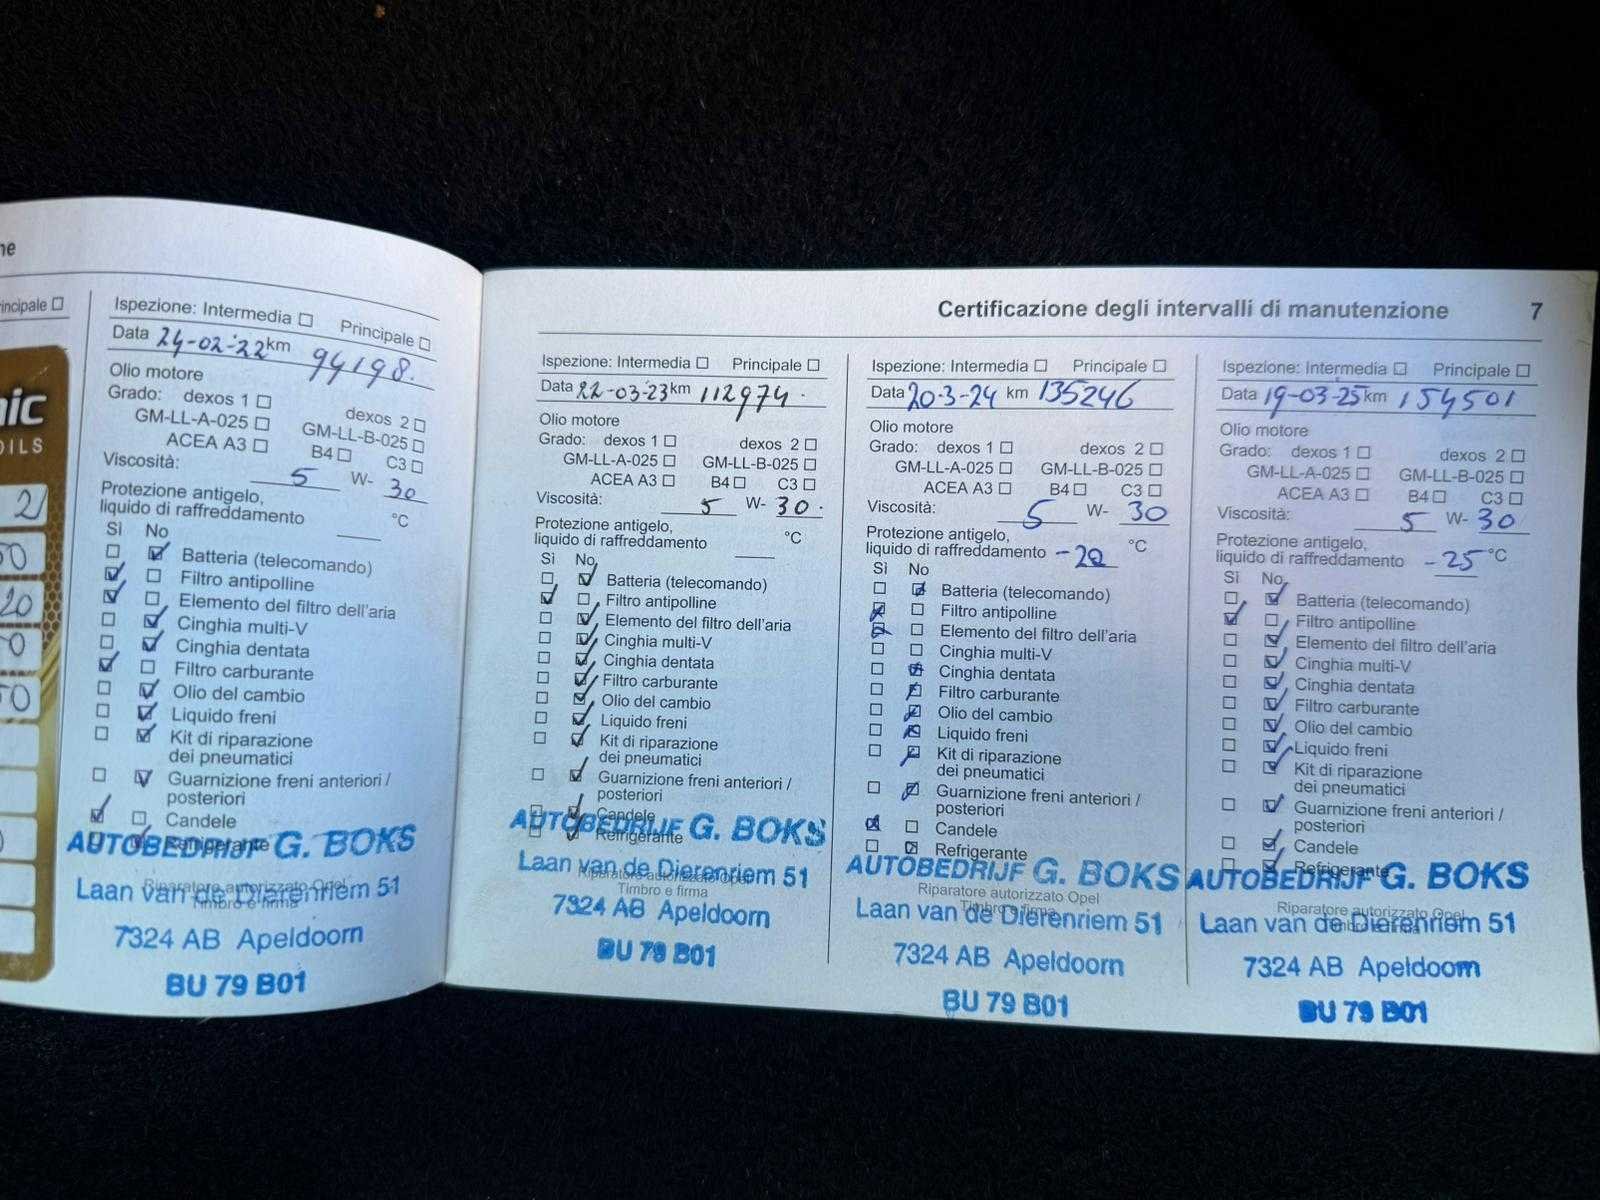 ne
rincipale
nic
OILS
2
50
20
0
50
Ispezione: Intermedia Principale
Data 24-02-'22 km 94198.
Olio motore
Grado: dexos 1 dexos 2
GM-LL-A-025 GM-LL-B-025
ACEA A3 B4 C3
Viscosità: 5 W- 30
Protezione antigelo,
liquido di raffreddamento °C
Sì No
Batteria (telecomando)
Filtro antipolline
Elemento del filtro dell'aria
Cinghia multi-V
Cinghia dentata
Filtro carburante
Olio del cambio
Liquido freni
Kit di riparazione
dei pneumatici
Guarnizione freni anteriori /
posteriori
Candele
Refrigerante
AUTOBEDRIJF G. BOKS
Riparatore autorizzato Opel
Laan van de Dierenriem 51
Timbro e firma
7324 AB Apeldoorn
BU 79 B01
Certificazione degli intervalli di manutenzione 7
Ispezione: Intermedia Principale
Data 22-03-'23 km 112974.
Olio motore
Grado: dexos 1 dexos 2
GM-LL-A-025 GM-LL-B-025
ACEA A3 B4 C3
Viscosità: 5 W- 30.
Protezione antigelo,
liquido di raffreddamento °C
Sì No
Batteria (telecomando)
Filtro antipolline
Elemento del filtro dell'aria
Cinghia multi-V
Cinghia dentata
Filtro carburante
Olio del cambio
Liquido freni
Kit di riparazione
dei pneumatici
Guarnizione freni anteriori /
posteriori
Candele
AUTOBEDRIJF G. BOKS
Refrigerante
Laan van de Dierenriem 51
Riparatore autorizzato Opel
Timbro e firma
7324 AB Apeldoorn
BU 79 B01
Ispezione: Intermedia Principale
Data 20-3-24 km 135246
Olio motore
Grado: dexos 1 dexos 2
GM-LL-A-025 GM-LL-B-025
ACEA A3 B4 C3
Viscosità: 5 W- 30
Protezione antigelo,
liquido di raffreddamento -20 °C
Sì No
Batteria (telecomando)
Filtro antipolline
Elemento del filtro dell'aria
Cinghia multi-V
Cinghia dentata
Filtro carburante
Olio del cambio
Liquido freni
Kit di riparazione
dei pneumatici
Guarnizione freni anteriori /
posteriori
Candele
Refrigerante
AUTOBEDRIJF G. BOKS
Riparatore autorizzato Opel
Timbro e firma
Laan van de Dierenriem 51
7324 AB Apeldoorn
BU 79 B01
Ispezione: Intermedia Principale
Data 19-03-25 km 154501
Olio motore
Grado: dexos 1 dexos 2
GM-LL-A-025 GM-LL-B-025
ACEA A3 B4 C3
Viscosità: 5 W- 30
Protezione antigelo,
liquido di raffreddamento -25 °C
Sì No
Batteria (telecomando)
Filtro antipolline
Elemento del filtro dell'aria
Cinghia multi-V
Cinghia dentata
Filtro carburante
Olio del cambio
Liquido freni
Kit di riparazione
dei pneumatici
Guarnizione freni anteriori /
posteriori
Candele
Refrigerante
AUTOBEDRIJF G. BOKS
Riparatore autorizzato Opel
Laan van de Dierenriem 51
Timbro e firma
7324 AB Apeldoorn
BU 79 B01